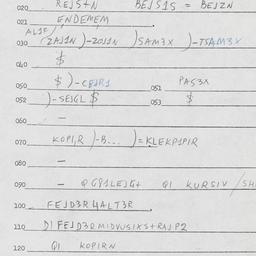 020 REJS+N BEJS1S = BEJZN
021 ENDEMEM
030 (2AJ1N)-20J1N )SAM3X )-TSAM3X
040 $
050 $ )-CEJR1 051 PAS3X
052 )-SEJGL $ 053 $
060 –
070 KOPI,R )-B... )=KLEKP1PIR
080 –
090 – QI KURSIV /SH
100 FEJD3R4ALT3R
110 DIFEJD3RMIDVUSIXS+RAJP2
120 QI KOPIRN